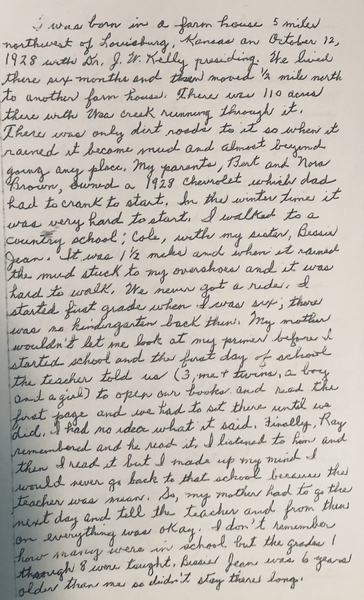 I was born in a farm house 5 miles
northwest of Louisburg, Kansas on October 12,
1928 with Dr. J. W. Kelly presiding. We lived
there six months and then moved ½ mile north
to another farm house. There was 110 acres
there with Wea creek running through it.
There was only dirt roads to it so when it
rained it became mud and almost beyond
going any place. My parents, Bert and Nora
Brown, owned a 1928 Chevrolet which dad
had to crank to start. In the winter time it
was very hard to start. I walked to a
country school; Cole, with my sister, Bessie
Jean. It was 1½ miles and when it rained
the mud stuck to my overshoes and it was
hard to walk. We never got a ride. I
started first grade when I was six; there
was no kindergarten back then. My mother
wouldn't let me look at my primer before I
started school and the first day of school
the teacher told us (3, me + twins, a boy
and a girl) to open our books and read the
first page and we had to sit there until we
did. I had no idea what it said. Finally, Ray
remembered and he read it. I listened to him and
then I read it but I made up my mind I
would never go back to that school because the
teacher was mean. So, my mother had to go the
next day and tell the teacher and from then
on everything was okay. I don't remember
how many were in school but the grades 1
through 8 were taught. Bessie Jean was 6 years
older than me so didn't stay there long.